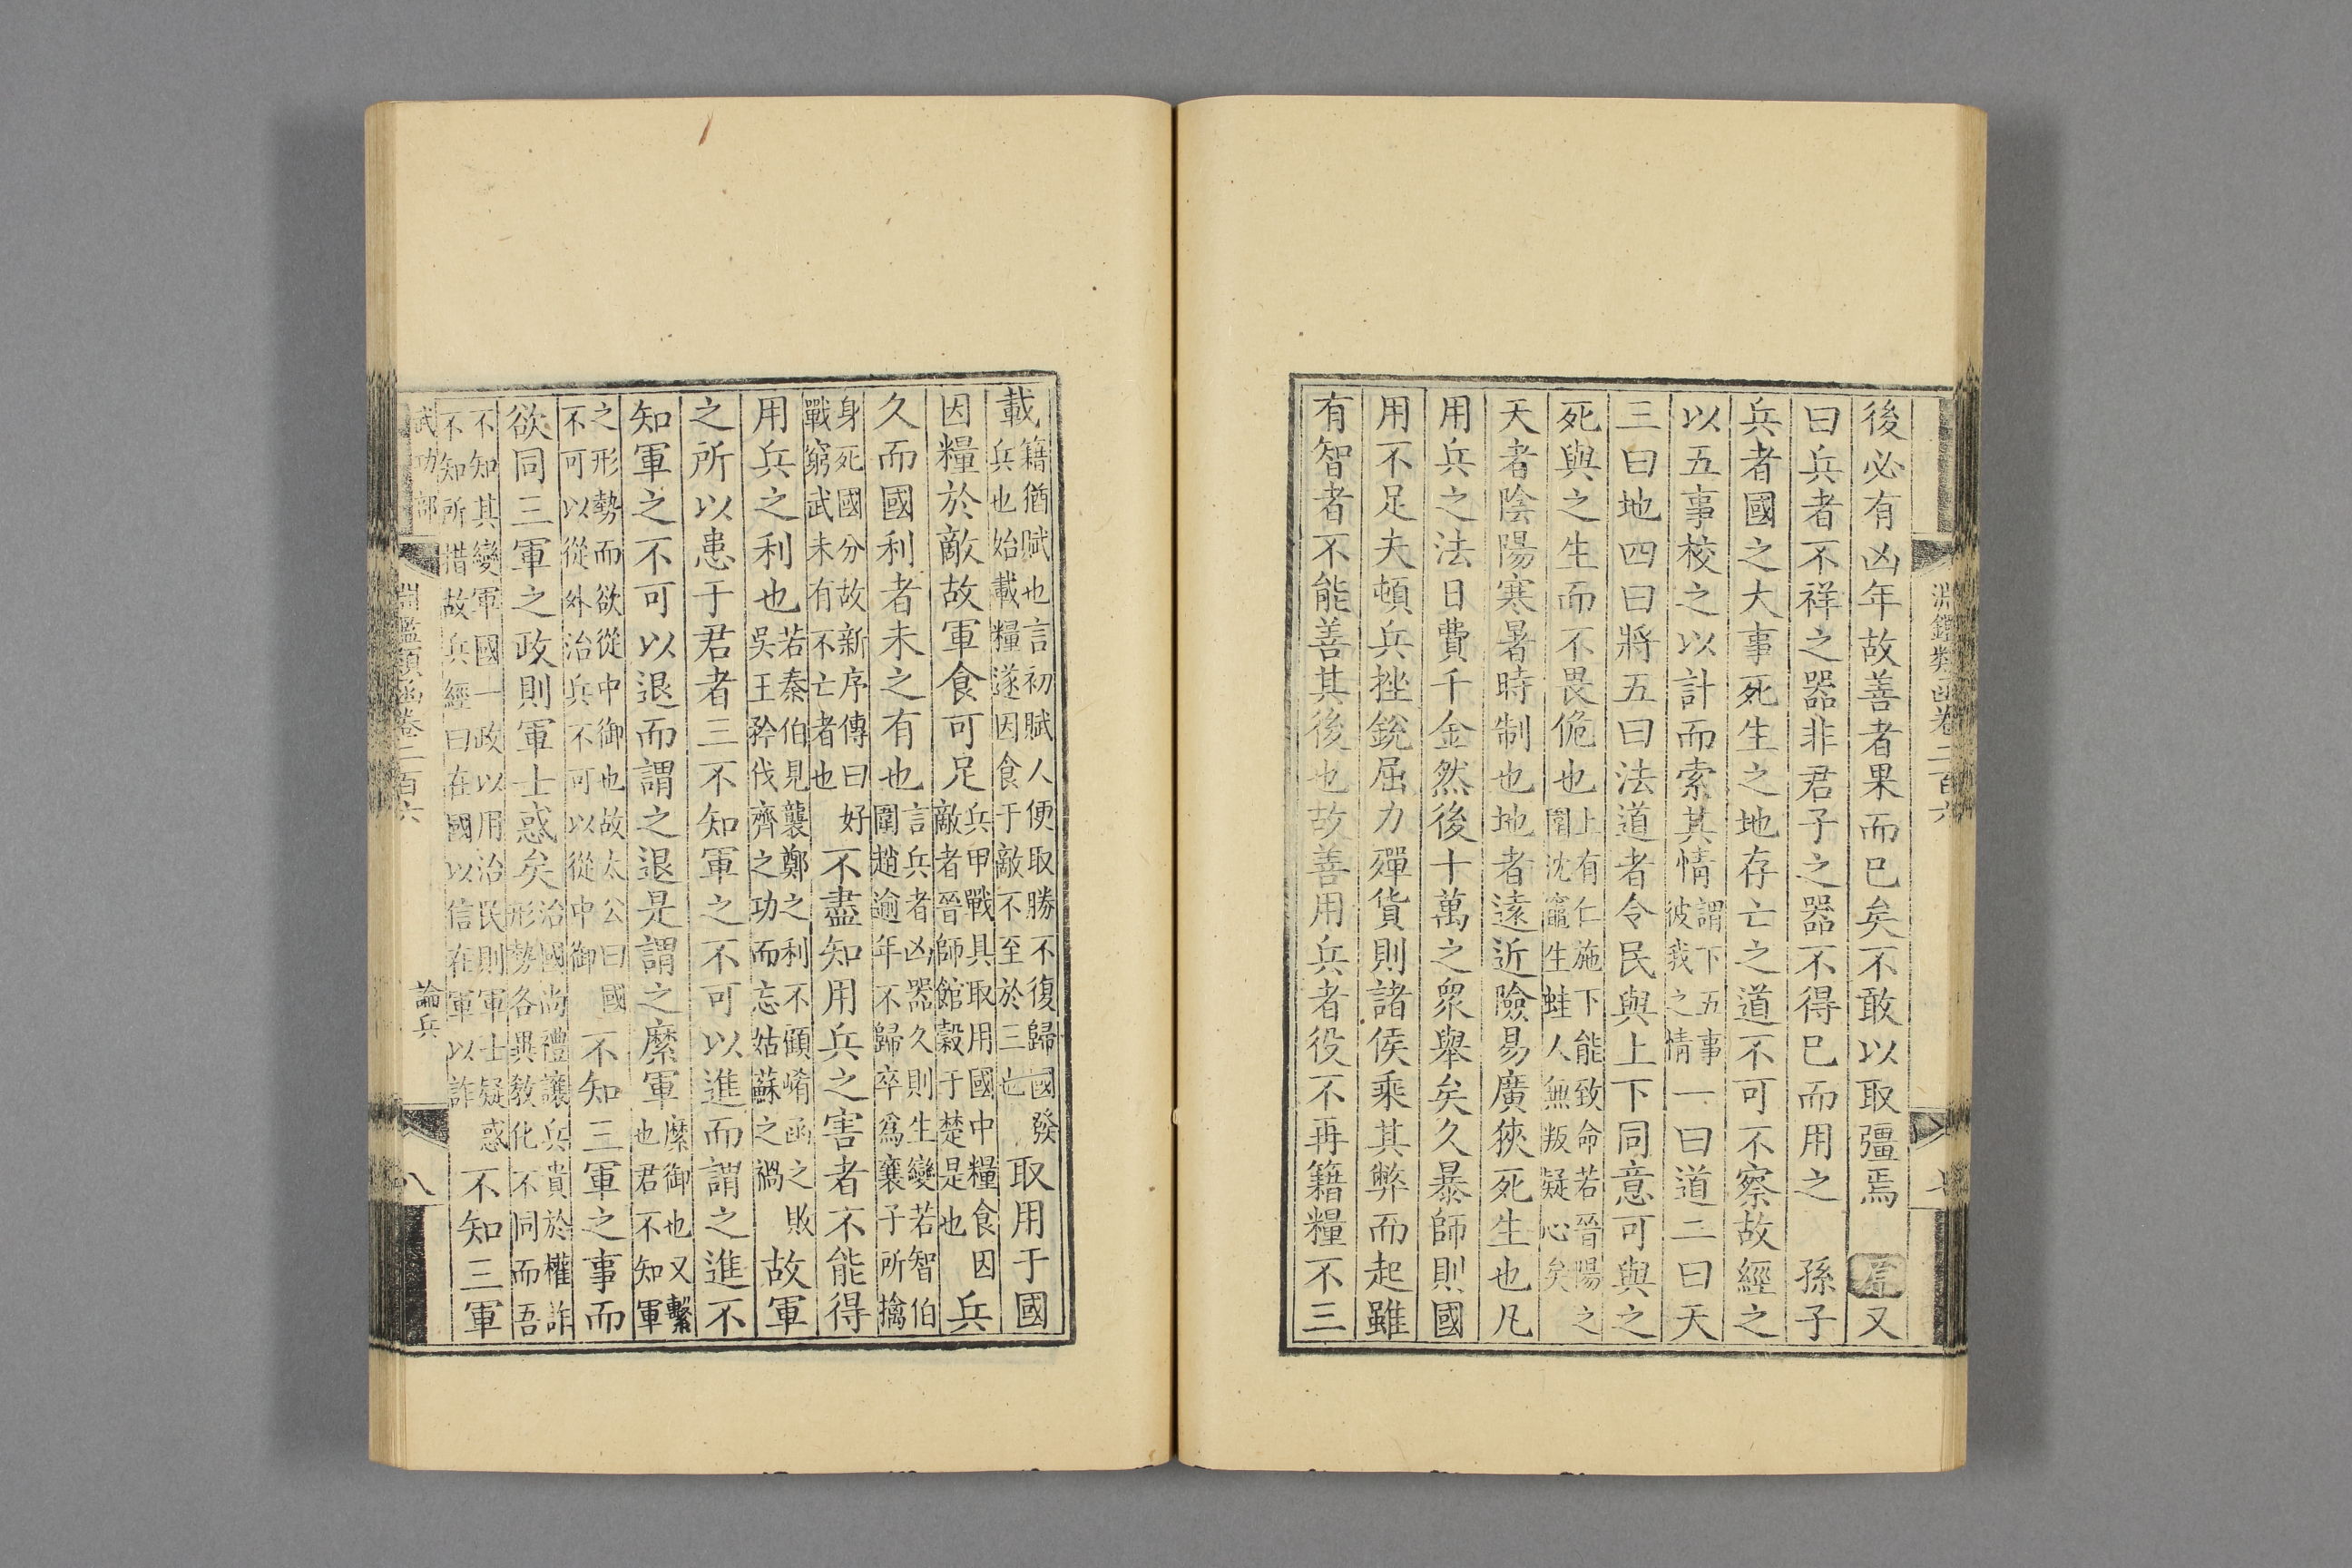 淵鑑類函卷二百六
後必有凶年故善者果而已矣不敢以取彊焉 原又
曰兵者不祥之器非君子之器不得已而用之 孫子
兵者國之大事死生之地存亡之道不可不察故經之
以五事校之以計而索其情謂下五事彼我之情一曰道二曰天
三曰地四曰將五曰法道者令民與上下同意可與之
死與之生而不畏佹也上有仁施下能致命若晉陽之圍沈竈生蛙人無叛疑心矣
天者陰陽寒暑時制也地者遠近險易廣狹死生也凡
用兵之法日費千金然後十萬之衆舉矣久暴師則國
用不足夫頓兵挫銳屈力殫貨則諸侯乘其弊而起雖
有智者不能善其後也故善用兵者役不再籍糧不三
載籍猶賦也言初賦人便取勝不復歸國發兵也始載糧遂因食于敵不至於三也取用于國
因糧於敵故軍食可足兵甲戰具取用國中糧食因敵者晉師館穀于楚是也兵
久而國利者未之有也言兵者凶器久則生變若智伯圍趙逾年不歸卒為襄子所擒
身死國分故新序傳曰好戰窮武未有不亡者也不盡知用兵之害者不能得
用兵之利也若秦伯見襲鄭之利不顧崤函之敗吳王矜伐齊之功而忘姑蘇之禍故軍
之所以患于君者三不知軍之不可以進而謂之進不
知軍之不可以退而謂之退是謂之縻軍縻御也又繫也君不知軍
之形勢而欲從中御也故太公曰國不可以從外治兵不可以從中御不知三軍之事而
欲同三軍之政則軍士惑矣治國尚禮讓兵貴於權詐形勢各異敎化不同而吾
不知其變軍國一政以用治民則軍士疑惑不知所措故兵經曰在國以信在軍以詐不知三軍
武功部 淵鑑類函卷二百六 論兵 八